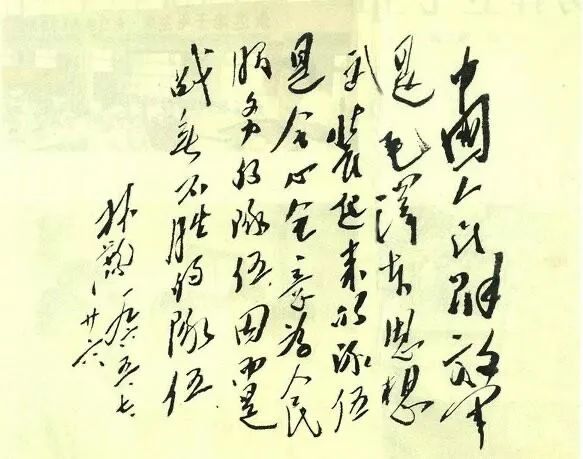 中國人民解放军
是毛澤东思想
武裝起来的隊伍
是全心全意为人民
服务的隊伍因而是
战無不胜的隊伍
林彪 一九六五.七.
廿六